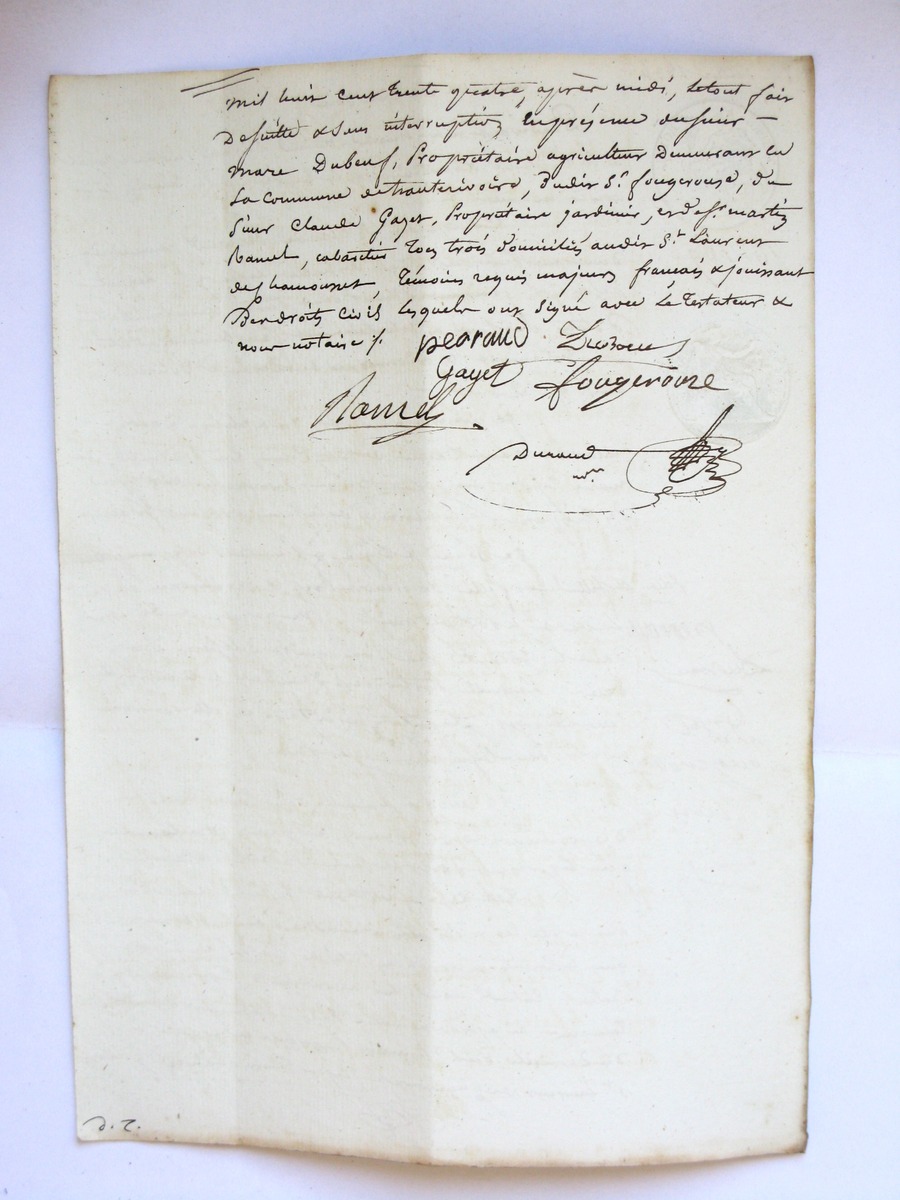 mil huit cent trente quatre, après midi, le tout fait
de suitte & sans interruption en présence du sieur —
marc Dubeuf, Propriétaire agriculteur Demeurant en
la commune de hauterivoire, dudit Sr. fougerouse, du
sieur Claude Gayet, Propriétaire jardinier, et de Sr. martin
Ramel, cabaretier tous trois domiciliés audit St. Laurent
de chamousset, Témoins requis majeurs français & jouissant
Des droits civils lesquels ont signé avec le Testateur &
nous notaire ⁒.
pearaud Dubeuf
Gayet fougerouse
Ramel
Durand
nre.
d. T.